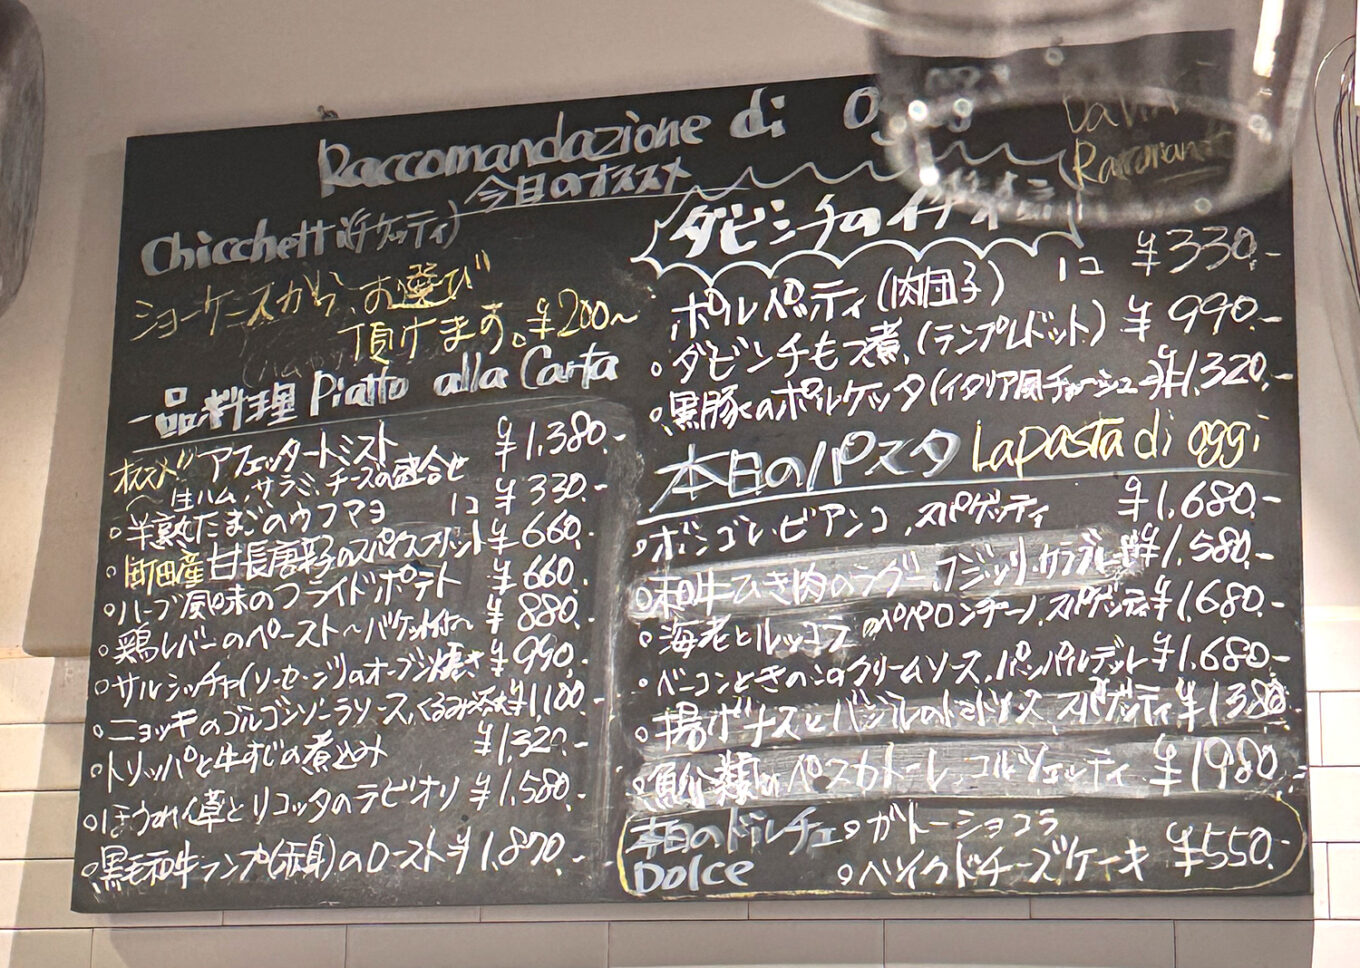 Raccomandazione di
今日のオススメ
Chicchetti(チケッティ)
ショーケースから、お選び
頂けます。¥200~
一品料理 Piatto alla Carta
オススメ!! アフェッタートミスト ¥1,380.-
~生ハム、サラミ、チーズの盛合せ
半熟たまごのウフマヨ 1コ ¥330.-
町田産甘長唐辛子のスパイスフリット ¥660.-
ハーブ風味のフライドポテト ¥660.
鶏レバーのペースト~バケット付~ ¥880.-
サルシッチャ(ソーセージ)のオーブン焼き ¥990.-
ニョッキのゴルゴンゾーラソース、くるみ ¥1,100.-
トリッパと牛すじの煮込み ¥1,320.-
ほうれん草とリコッタのラビオリ ¥1,580.-
黒毛和牛ランプ(赤身)のロースト ¥1,870.-
ダビンチの
ポルペッティ(肉団子) 1コ ¥330.-
ダビンチもつ煮、(ランプレドット) ¥990.-
黒豚のポルケッタ(イタリア風チャーシュー) ¥1,320.-
本日のパスタ La pasta di oggi
ボンゴレ・ビアンコ、スパゲッティ ¥1,680.-
和牛ひき肉のラグー、フジッリ・カラブレーゼ ¥1,580.-
海老とルッコラのペペロンチーノ、スパゲッティ ¥1,680.-
ベーコンときのこのクリームソース、パッパルデッレ ¥1,680.-
揚げナスとバジルのトマトソース、スパゲッティ ¥1,380.-
魚介類のペスカトーレ、 ¥1980.-
本日のドルチェ ガトーショコラ
Dolce ベイクドチーズケーキ ¥550.-